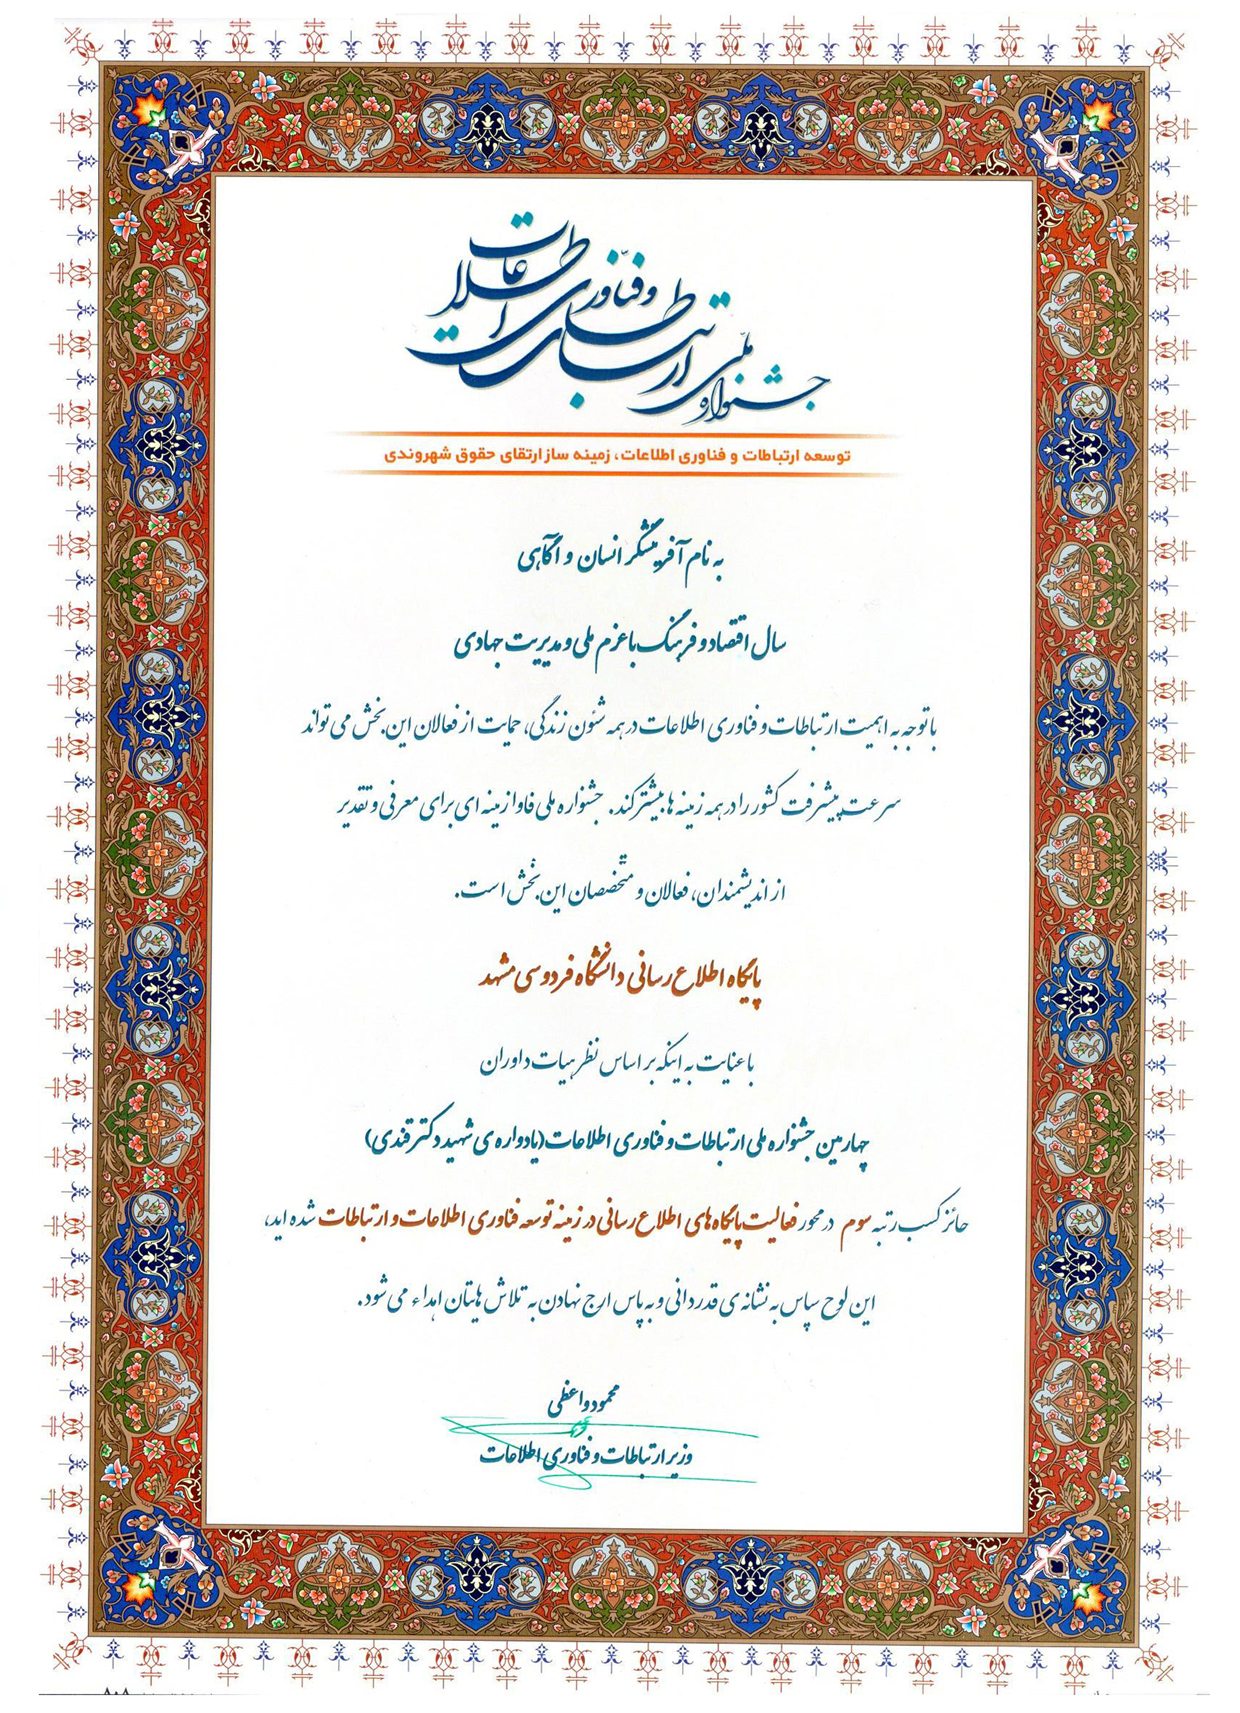 جشنواره ملّی ارتباطات و فنّاوری اطلاعات
توسعه ارتباطات و فناوری اطلاعات، زمینه ساز ارتقای حقوق شهروندی
به نام آفرینشگر انسان و آگاهی
سال اقتصاد و فرهنگ با عزم ملی و مدیریت جهادی
با توجه به اهمیت ارتباطات و فناوری اطلاعات در همه شئون زندگی، حمایت از فعالان این بخش می تواند
سرعت پیشرفت کشور را در همه زمینه ها بیشتر کند. جشنواره ملی فاوا زمینه ای برای معرفی و تقدیر
از اندیشمندان، فعالان و متخصصان این بخش است.
پایگاه اطلاع رسانی دانشگاه فردوسی مشهد
با عنایت به اینکه بر اساس نظر هیات داوران
چهارمین جشنواره ملی ارتباطات و فناوری اطلاعات (یادواره ی شهید دکتر قندی)
حائز کسب رتبه سوم در محور فعالیت پایگاه های اطلاع رسانی در زمینه توسعه فناوری اطلاعات و ارتباطات شده اید،
این لوح سپاس به نشانه ی قدردانی و به پاس ارج نهادن به تلاش هایتان اهداء می شود.
محمود واعظی
وزیر ارتباطات و فناوری اطلاعات